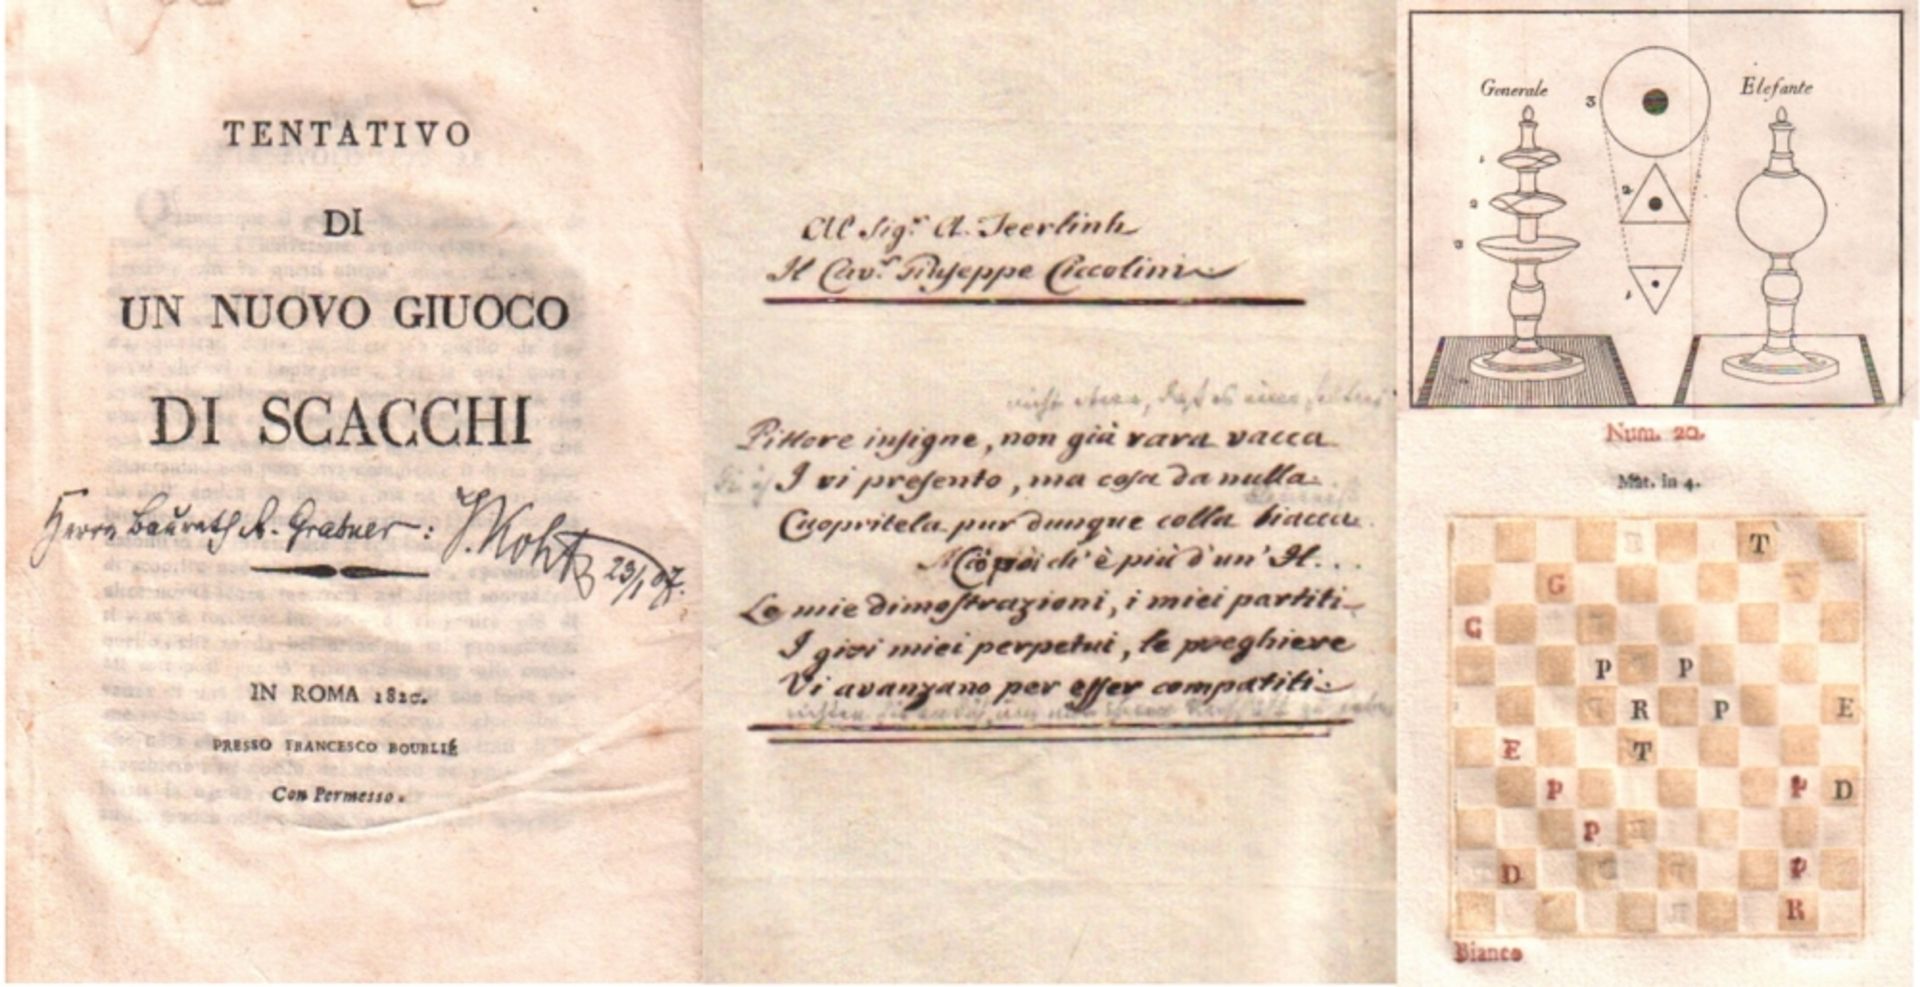 TENTATIVO
DI
UN NUOVO GIUOCO
DI SCACCHI
Herrn Baurath A. Grabner: J. Kohtz 23/1 07.
IN ROMA 1820.
PRESSO FRANCESCO BOURLIÉ
Con Permesso.
Al Sigʳ. A. Teerlink
Il Cavʳ. Giuseppe Ciccolini
Pittore insigne, non già rara vacca
I vi presento, ma cosa da nulla
Cuopritela pur dunque colla biacca
di' è più d'un' H...
Le mie dimostrazioni, i miei partiti
I giri miei perpetui, le preghiere
Vi avanzano per esser compatiti
Generale
Elefante
3
1
2
2
3
1
Num. 20.
Mat. in 4.
T
G
G
P P
R P E
E T
P P D
P
D P
R
Bianco